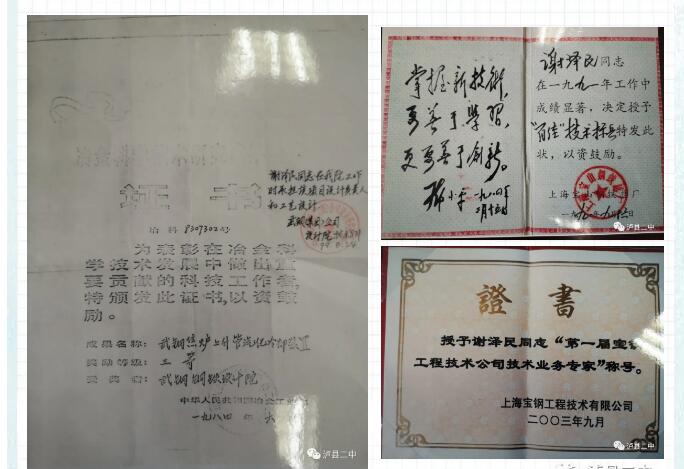 证书
冶科830730203
谢泽民同志在我院工作
时承担该项目设计负责人
和工艺设计
为表彰在冶金科
学技术发展中做出重
要贡献的科技工作者,
特颁发此证书,以资鼓
励。
成果名称: 武钢焦炉上升管汽化冷却装置
奖励等级: 三等
受奖者: 武钢钢铁设计院
中华人民共和国冶金工业
一九八四年
泸县二中
掌握新技術,
要善于學習,
更要善于創新。
邓小平
谢泽民同志
在一九九一年工作中
成绩显著,决定授予
"百佳"技术标兵特发此
状,以资鼓励。
上海宝山
一九九
泸县二中
證書
授予谢泽民同志“第一届宝钢
工程技术公司技术业务专家”称号。
上海宝钢工程技术有限公司
二〇〇三年九月
泸县二中